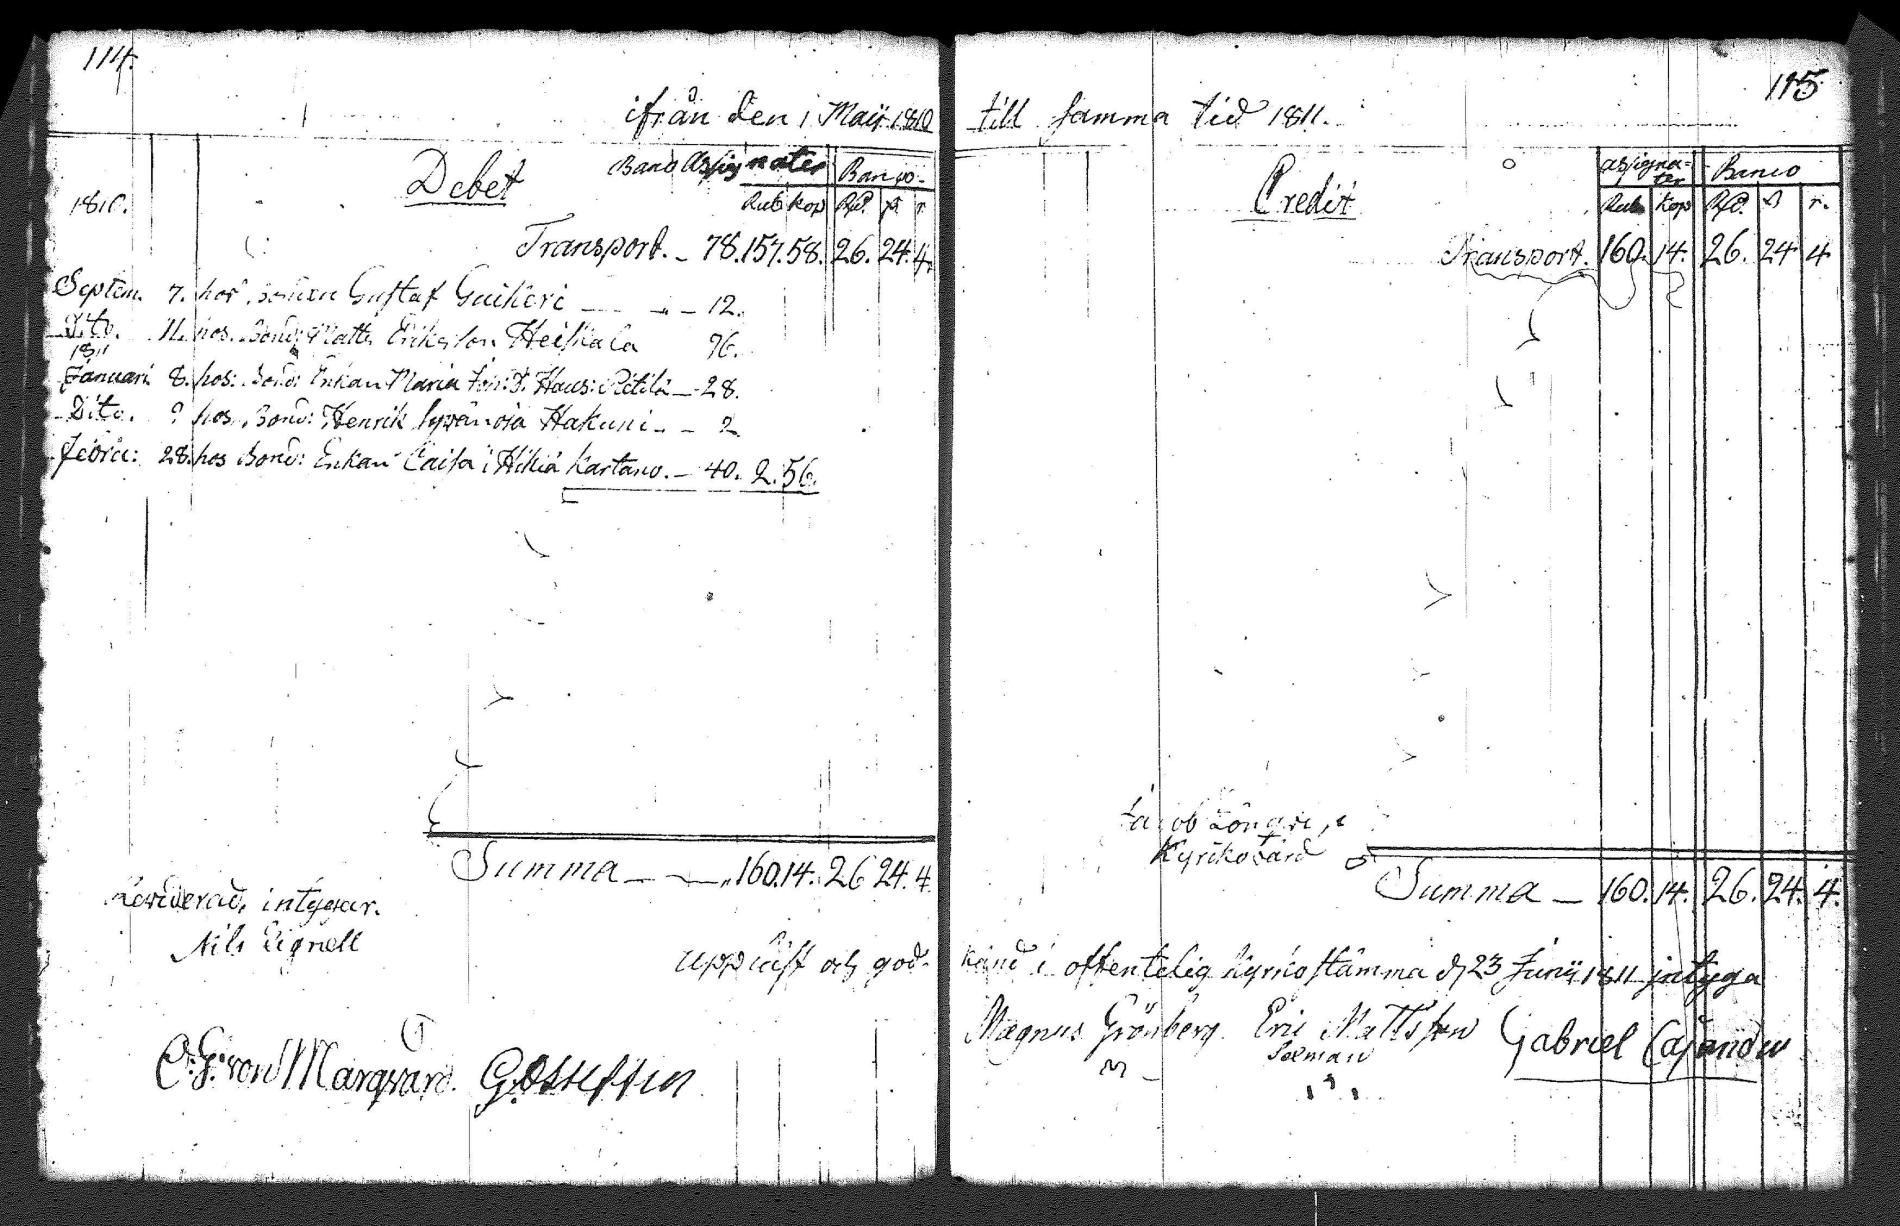 114.
ifrån den 1 Maij 1810
Debet
Banco Assignater Banco
1810.
Rub kop Rd. ß r.
Transport. 78. 157. 58. 26. 24. 4.
Septem. 7. hos Gustaf Guikeri 12.
Dito. 11. hos Bond: Matts Eriksson Heiskala 96.
1811
Januari 8. hos: Bond: Enkan Maria 28.
Dito. hos Bond: Henrik Hakuni 2
Febru: 28. hos Bond: Enkan Caisa i Hikiä Kartano. 40. 2. 56.
Summa 160. 14. 26 24. 4
Reviderad, intygar.
Nils Lignell
Uppläst och god-
C. G. von Marqvard.
115
till samma tid 1811.
Credit
assigna-
ter
Banco
Rub kop Rd. ß r.
Transport. 160. 14. 26. 24 4
Jacob
Kyrkovärd
Summa 160. 14. 26. 24. 4.
känd i offentelig Kyrkostämma d 23 Junii 1811 intyga
Magnus Grönberg. Eric Mattsson Gabriel Cajander